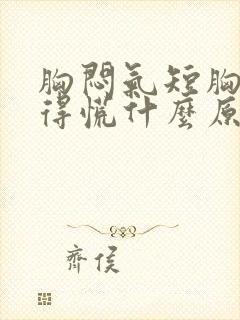 胸悶氣短胸
得慌什麼原
齊侯